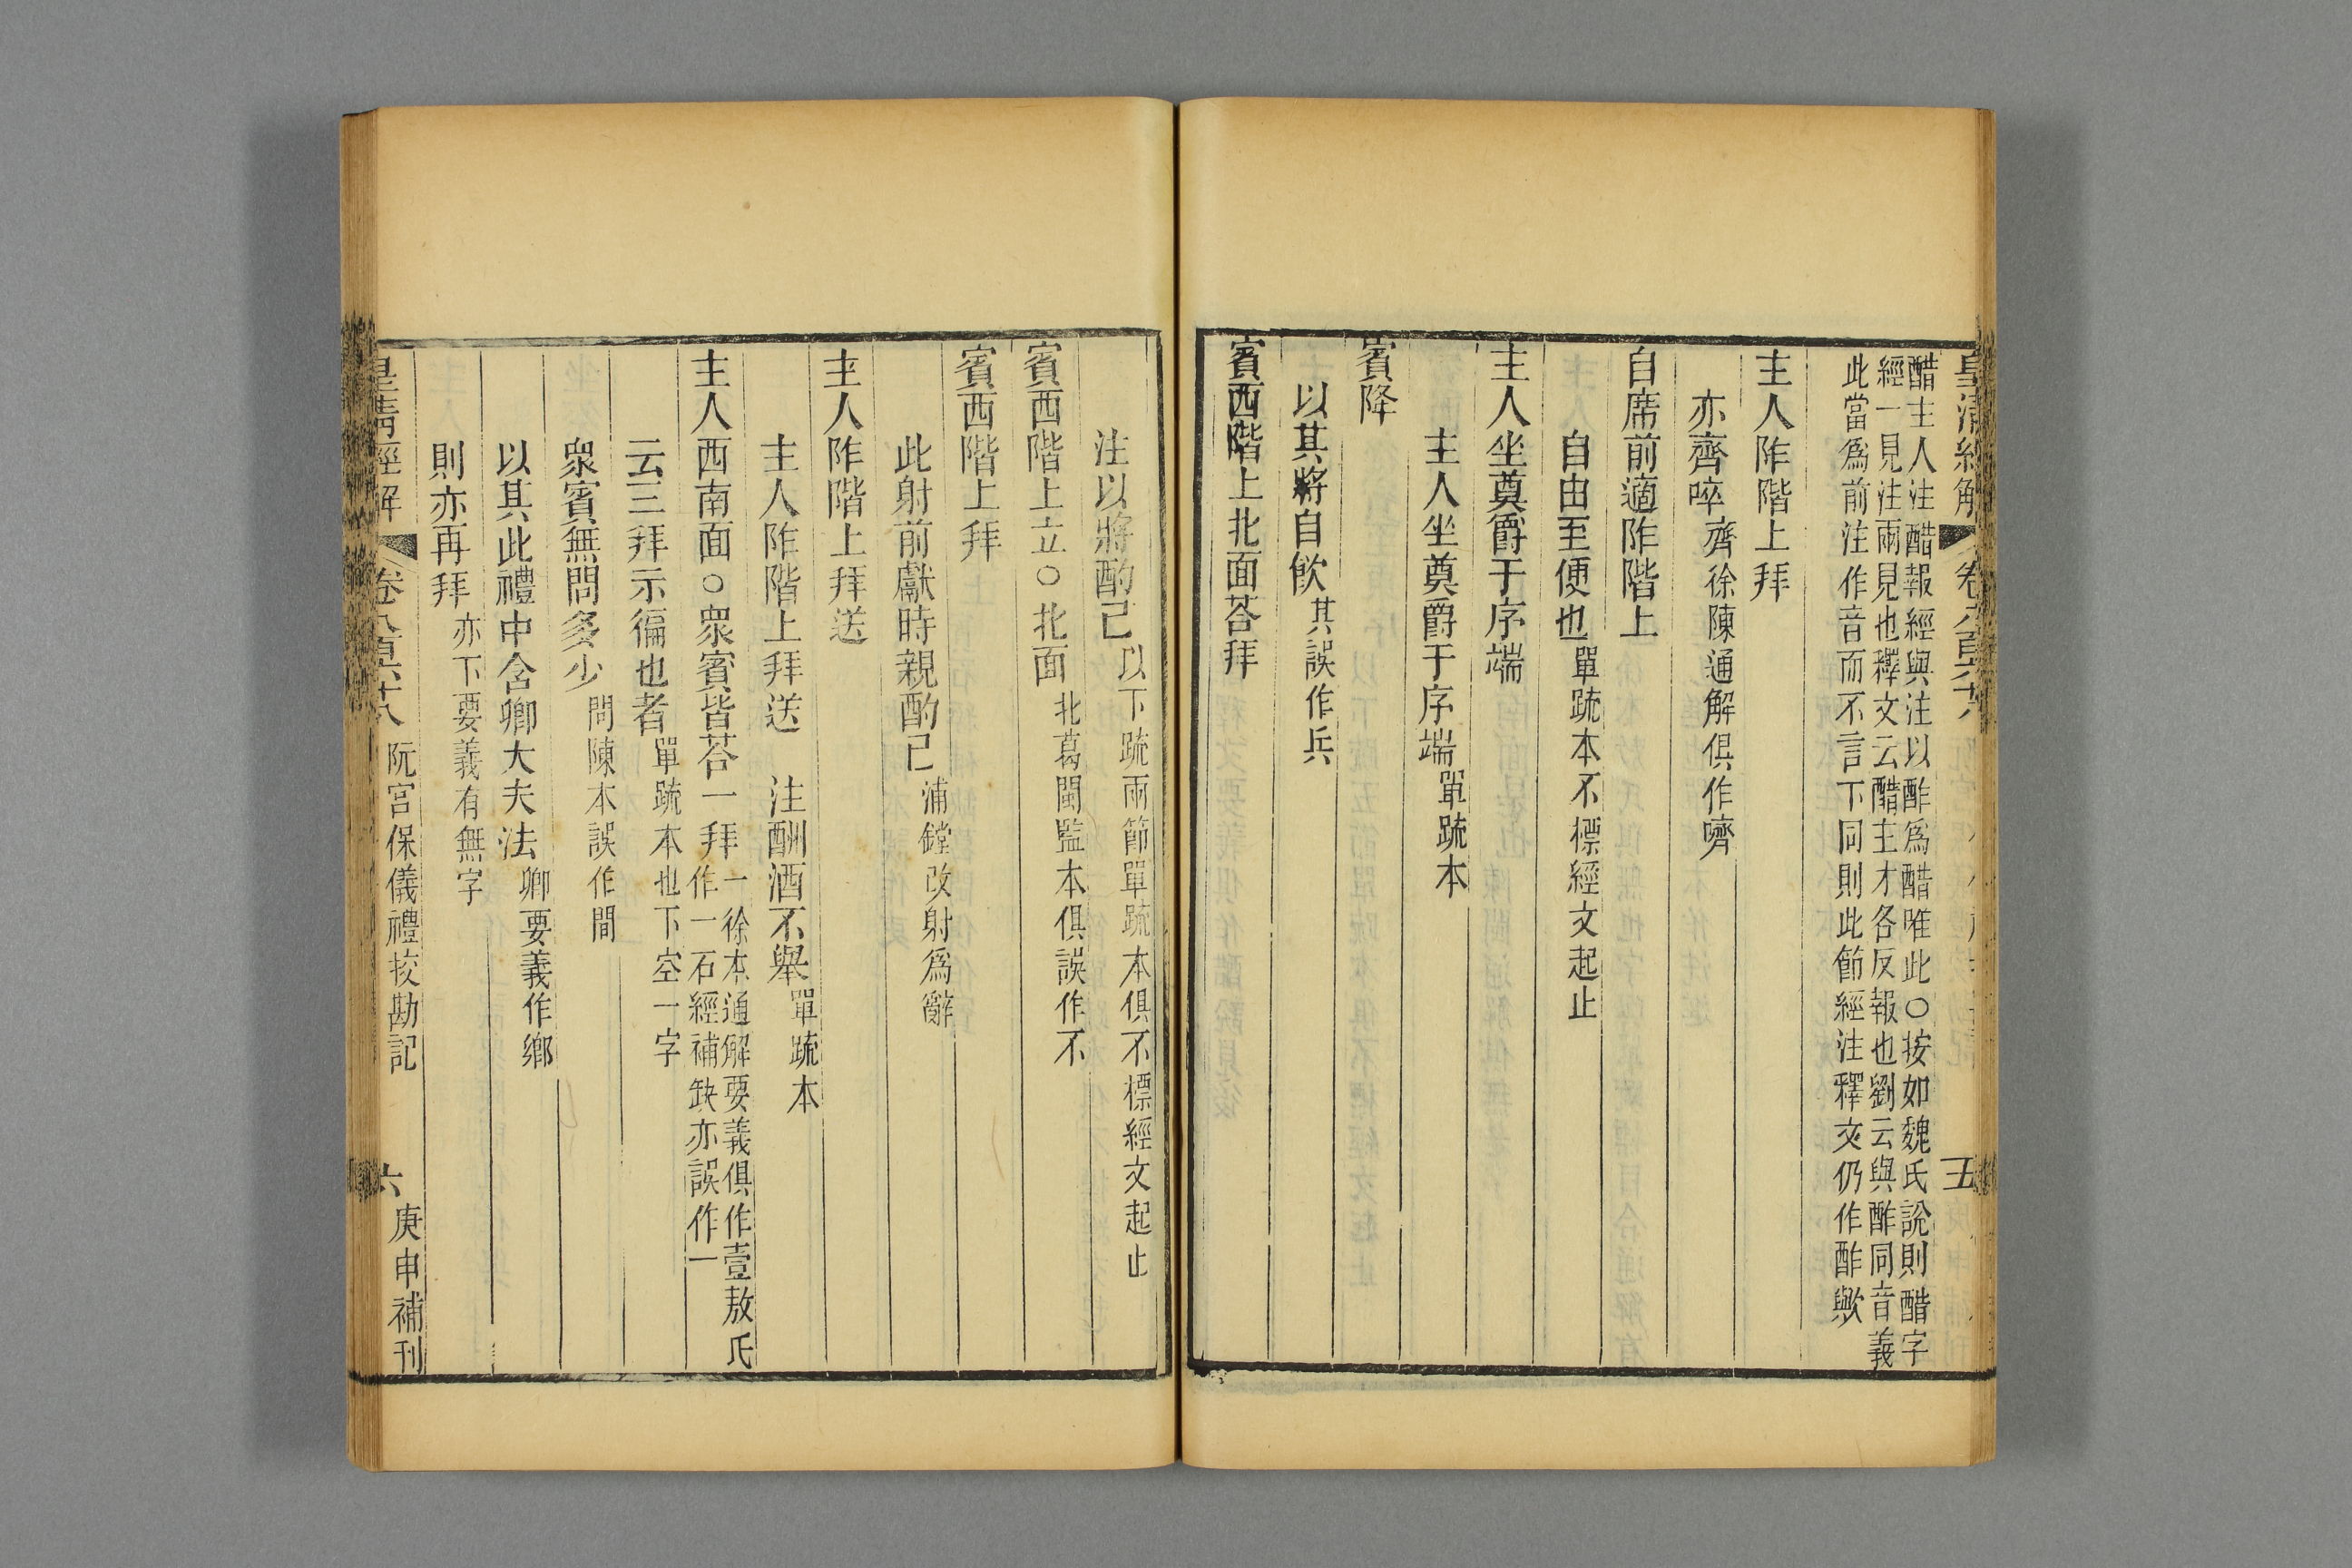 皇清經解 卷八百六十八 五
醋主人注醋報經與注以酢爲醋唯此○按如魏氏說則醋字
經一見注兩見也釋文云醋主才各反報也劉云與酢同音義
此當爲前注作音而不言下同則此節經注釋文仍作酢歟
主人阼階上拜
亦齊啐齊徐陳通解俱作嚌
自席前適阼階上
自由至便也單疏本不標經文起止
主人坐奠爵于序端
主人坐奠爵于序端單疏本
賓降
以其將自飲其誤作兵
賓西階上北面荅拜
注以將酌己以下疏兩節單疏本俱不標經文起止
賓西階上立○北面北葛閩監本俱誤作不
賓西階上拜
此射前獻時親酌己浦鏜改射爲辭
主人阼階上拜送
主人阼階上拜送 注酬酒不舉單疏本
主人西南面○衆賓皆荅一拜一徐本通解要義俱作壹敖氏
作一石經補缺亦誤作一
云三拜示徧也者單疏本也下空一字
衆賓無問多少問陳本誤作間
以其此禮中含卿大夫法卿要義作鄉
則亦再拜亦下要義有無字
皇清經解 卷八百六十八 阮宮保儀禮挍勘記 六 庚申補刊